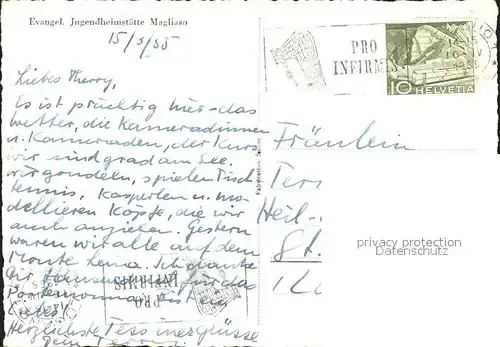 Evangel. Jugendheimstätte Magliaso
15/5/55
Liebes Therry,
Es ist prächtig hier – das
Wetter, die Kameradinnen
u. Kameraden, der Kurs
wir sind grad am See.
wir gondeln, spielen Tisch
tennis, Kasperlen u. mo
dellieren Köpfe, die wir
auch anziehen. Gestern
waren wir alle auf dem
Monte Lema. Ich danke
Dir für das
Portemonnaie
Liebes!
Herzlichste Tessinergrüsse
PRO
INFIRMIS
10 HELVETIA
Fräulein
Ters
Heil-
St.
Fabrication Suisse
privacy protection
Datenschutz
PRO
INFIRMIS